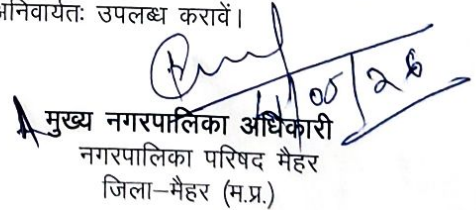 अनिवार्यतः उपलब्ध करावें।
05/26
मुख्य नगरपालिका अधिकारी
नगरपालिका परिषद मैहर
जिला–मैहर (म.प्र.)